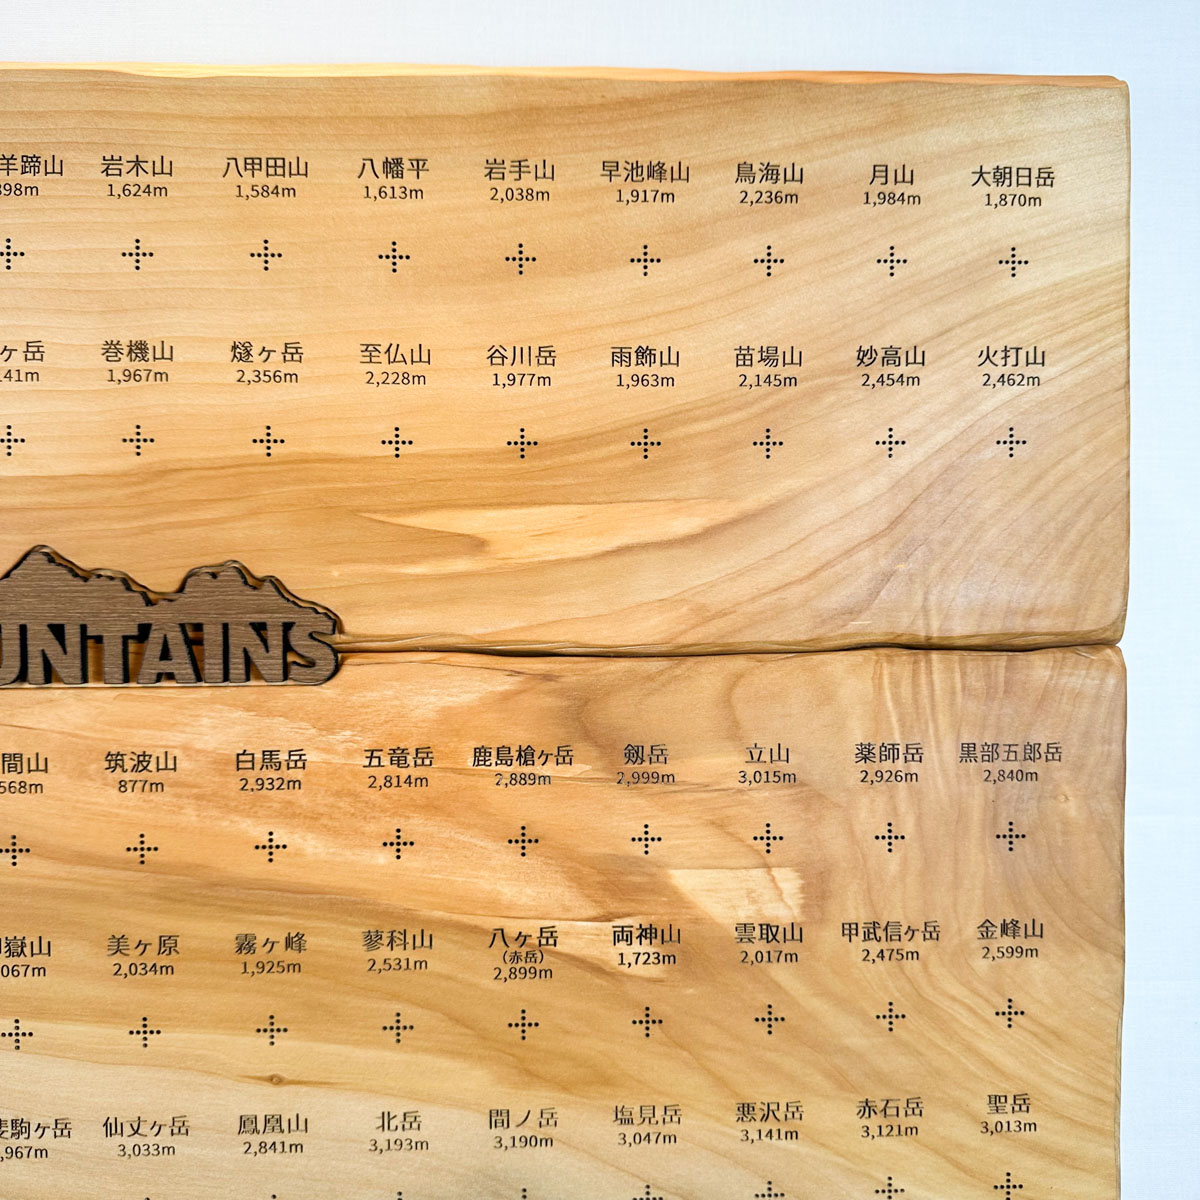 羊蹄山 岩木山 八甲田山 八幡平 岩手山 早池峰山 鳥海山 月山 大朝日岳
898m 1,624m 1,584m 1,613m 2,038m 1,917m 2,236m 1,984m 1,870m
ヶ岳 巻機山 燧ヶ岳 至仏山 谷川岳 雨飾山 苗場山 妙高山 火打山
141m 1,967m 2,356m 2,228m 1,977m 1,963m 2,145m 2,454m 2,462m
UNTAINS
間山 筑波山 白馬岳 五竜岳 鹿島槍ヶ岳 剱岳 立山 薬師岳 黒部五郎岳
568m 877m 2,932m 2,814m 2,889m 2,999m 3,015m 2,926m 2,840m
嶽山 美ヶ原 霧ヶ峰 蓼科山 八ヶ岳 両神山 雲取山 甲武信ヶ岳 金峰山
(赤岳)
067m 2,034m 1,925m 2,531m 2,899m 1,723m 2,017m 2,475m 2,599m
斐駒ヶ岳 仙丈ヶ岳 鳳凰山 北岳 間ノ岳 塩見岳 悪沢岳 赤石岳 聖岳
,967m 3,033m 2,841m 3,193m 3,190m 3,047m 3,141m 3,121m 3,013m